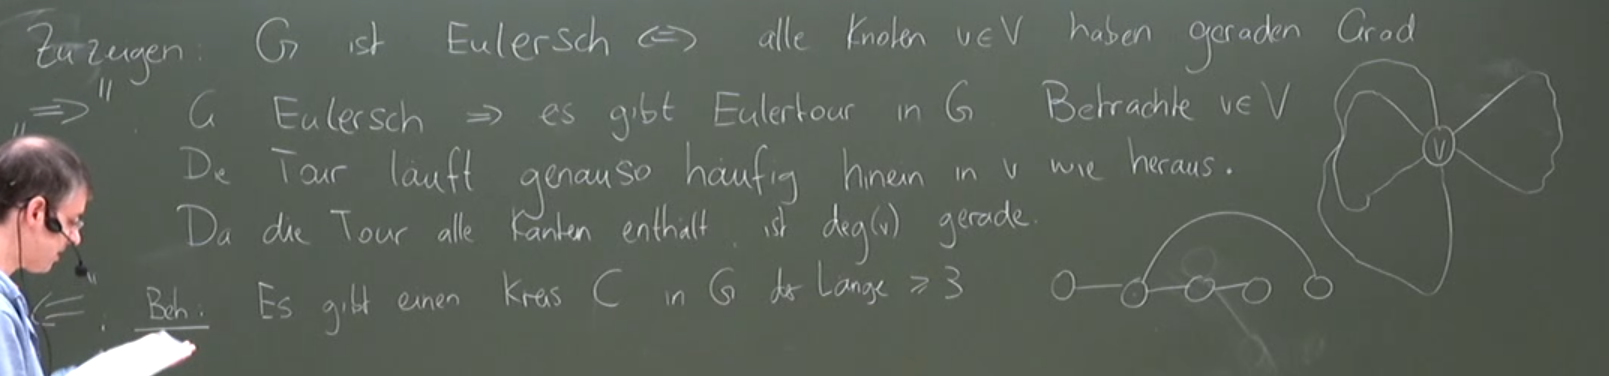 Zu zeigen: G ist Eulersch ⇔ alle Knoten v∈V haben geraden Grad
"⇒": G Eulersch ⇒ es gibt Eulertour in G. Betrachte v∈V
Die Tour läuft genauso häufig hinein in v wie heraus.
Da die Tour alle Kanten enthält, ist deg(v) gerade.
"⇐": Beh.: Es gibt einen Kreis C in G der Länge ≥ 3
v